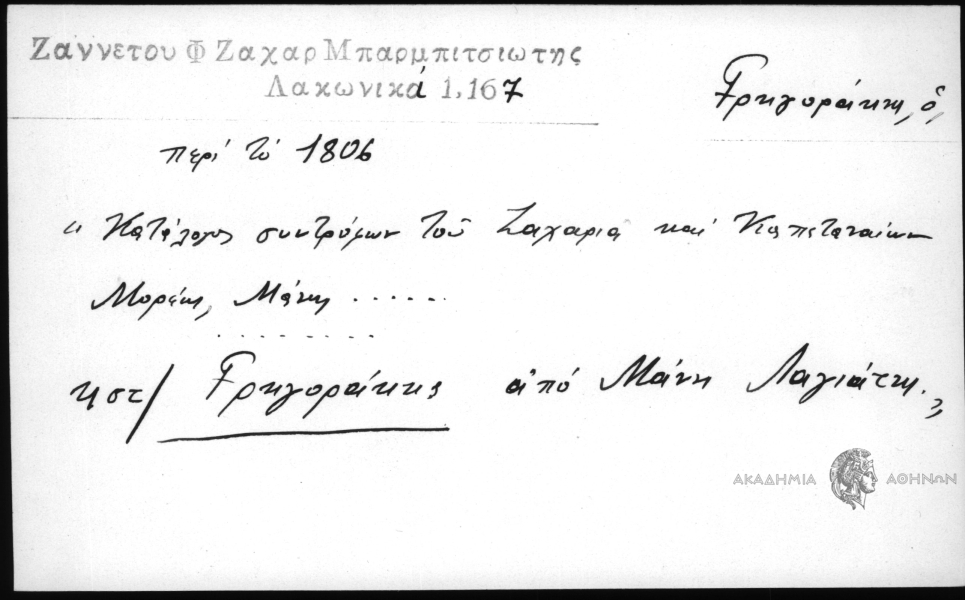 Ζαννετου Φ Ζαχαρ Μπαρμπιτσιωτης
Λακωνικά 1,167
Γρηγοράκης, ὁ,
περί τό 1806
« Κατάλογος συντρόμων τοῦ Ζαχαρια καί Καπεταναίων
Μορέως, Μάνης ......
.........
Γρηγοράκης ἀπό Μάνη Λαγιάτης. »
ΑΚΑΔΗΜΙΑ ΑΘΗΝΩΝ